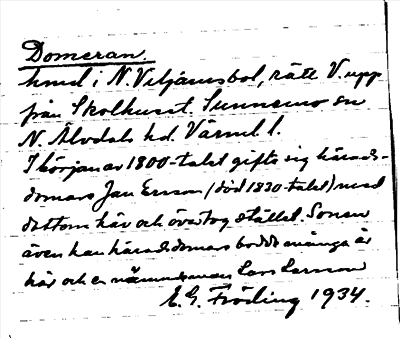 Domeran.
hmd i N. Viljamsbol, rätt V. upp
från Skolhuset. Sunnemo sn
N. Älvdals hd. Värml l.
I början av 1800-talet gifte sig härads-
domars Jan Ersson (död 1830-talet) med
dottern här och övertog stället. Sonen
även han häradsdomars bodde många år
här och en nämndeman Lars Larsson
E. G. Fröding 1934.